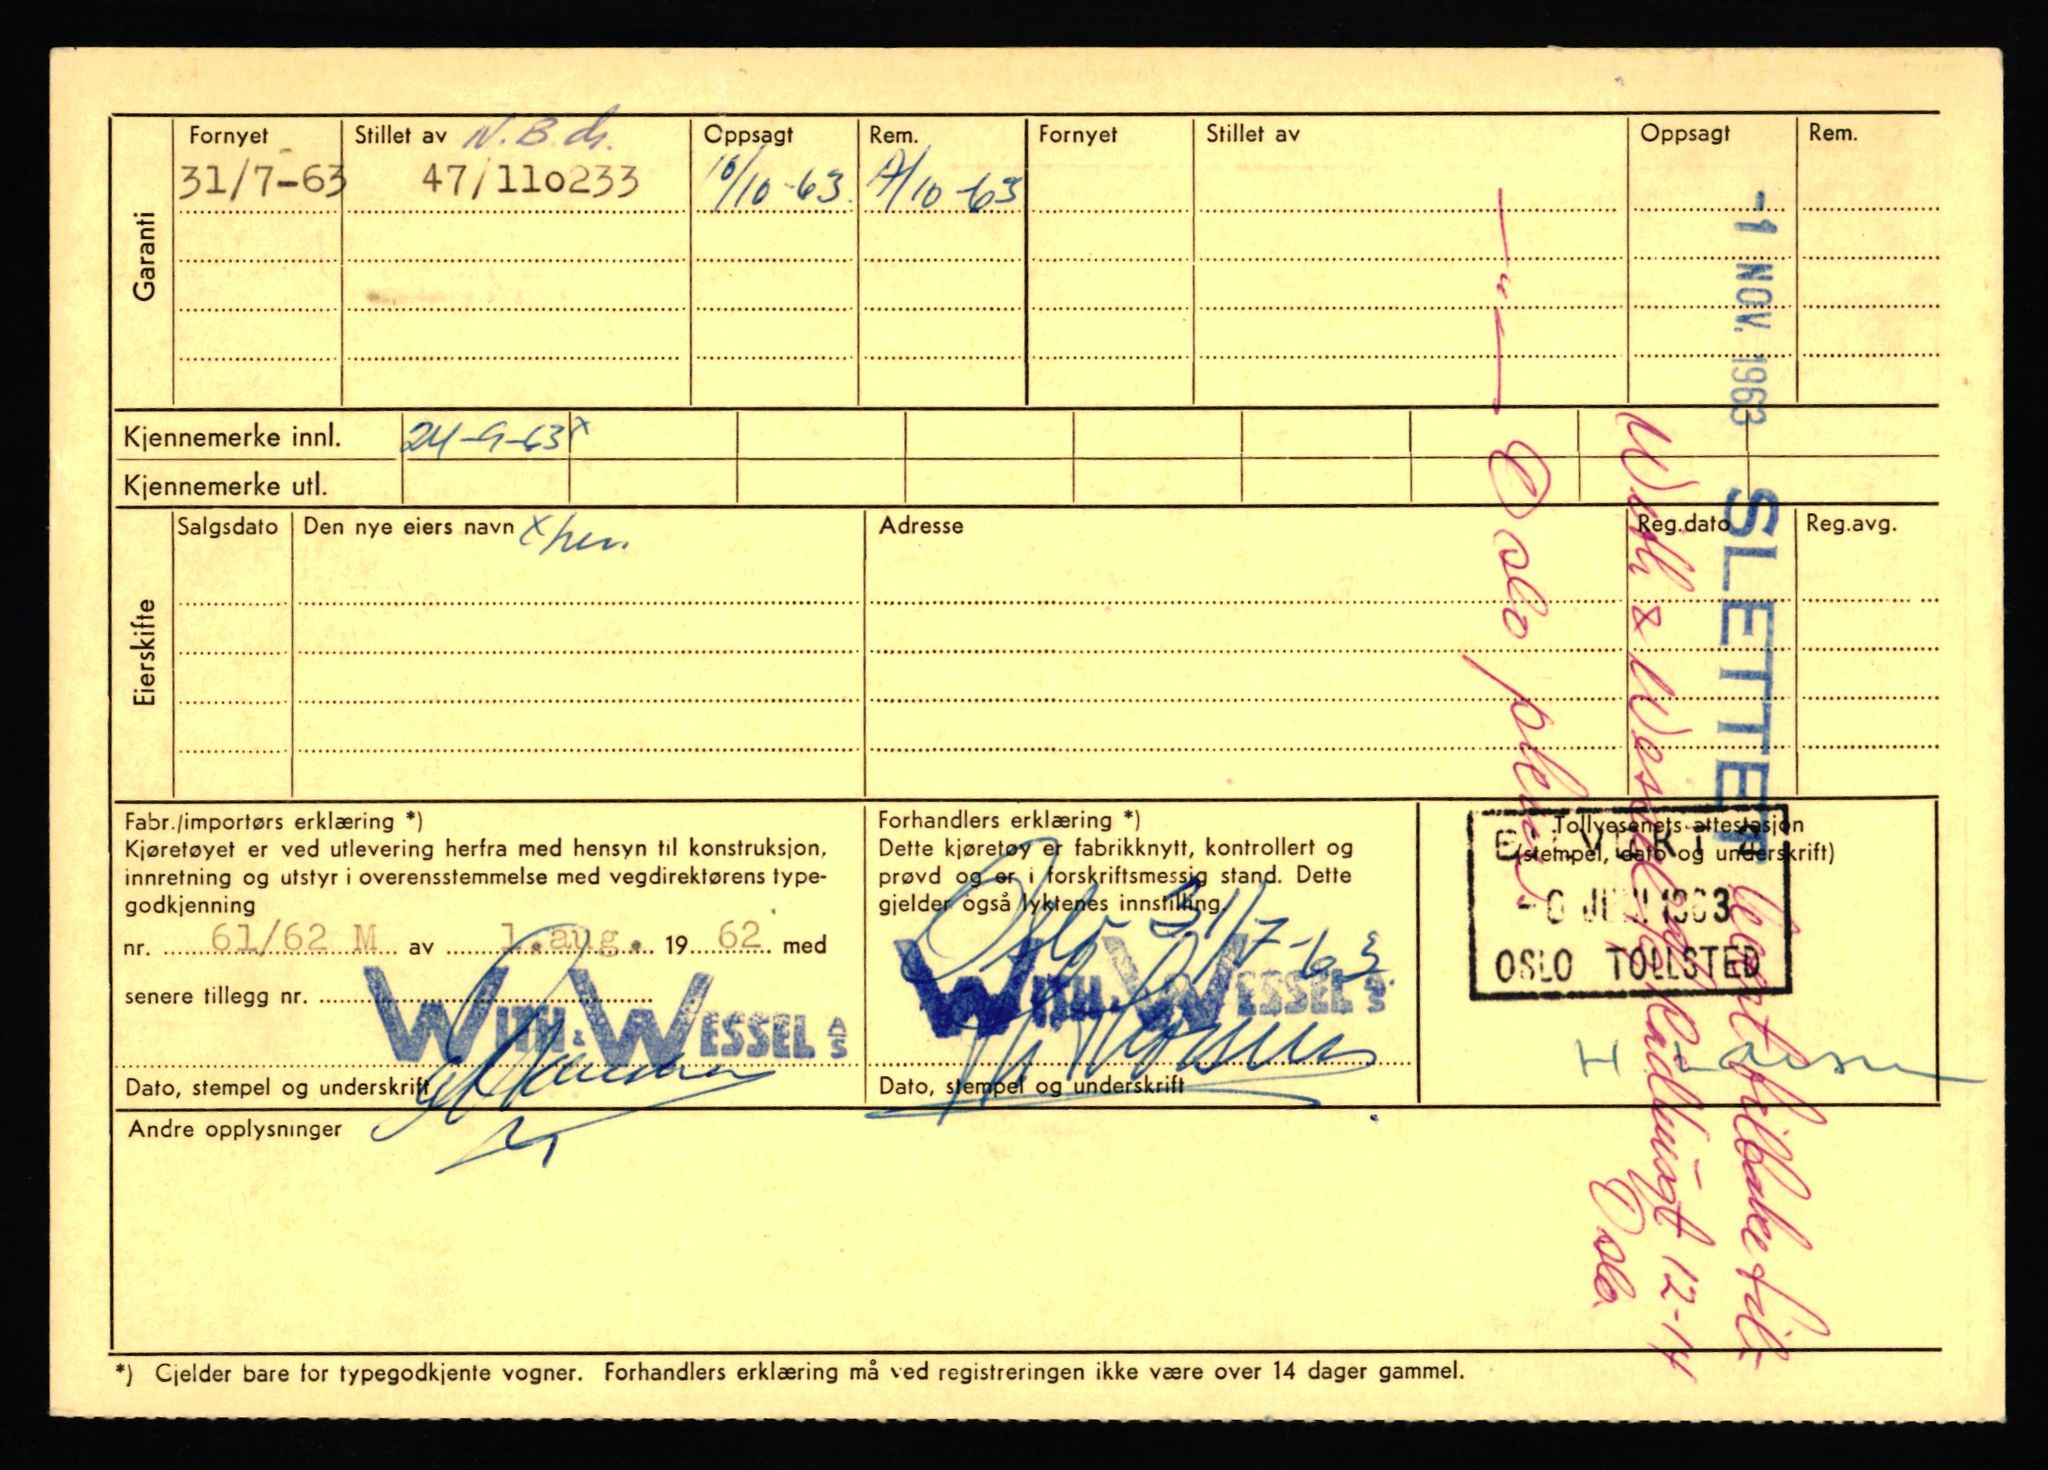 Garanti
Fornyet Stillet av N.B.ds. Oppsagt Rem. Fornyet Stillet av Oppsagt Rem.
31/7-63 47/110233 10/10-63. 17/10-63
Kjennemerke innl. 24-9-63x
Kjennemerke utl.
Eierskifte
Salgsdato Den nye eiers navn x hen. Adresse Reg.dato Reg.avg.
Fabr./importørs erklæring *)
Kjøretøyet er ved utlevering herfra med hensyn til konstruksjon,
innretning og utstyr i overensstemmelse med vegdirektørens type-
godkjenning
nr. 61/62 M av 1.aug. 19 62 med
senere tillegg nr.
WITH & WESSEL A/S
Dato, stempel og underskrift
Forhandlers erklæring *)
Dette kjøretøy er fabrikknytt, kontrollert og
prøvd og er i forskriftsmessig stand. Dette
gjelder også lyktenes innstilling.
Oslo 31/7-63
WITH & WESSEL A/S
Dato, stempel og underskrift
Tollvesenets attestasjon
(stempel, dato og underskrift)
1963
OSLO TOLLSTED
Andre opplysninger
*) Gjelder bare for typegodkjente vogner. Forhandlers erklæring må ved registreringen ikke være over 14 dager gammel.
-1 NOV. 1963 SLETTET
tilbake til
With & Wessel 12-14
Oslo.
— " — Oslo